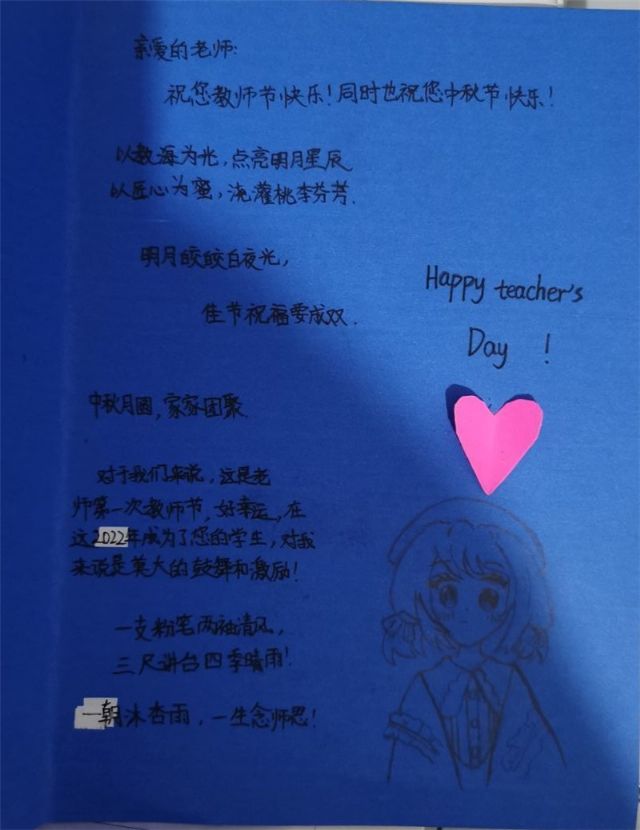 亲爱的老师:
祝您教师节快乐！同时也祝您中秋节快乐！
以教海为光，点亮明月星辰
以匠心为蜜，浇灌桃李芬芳.
明月皎皎白夜光，
佳节祝福要成双.
Happy teacher's
Day !
中秋月圆，家家团聚.
对于我们来说，这是老
师第一次教师节，好幸运，在
这2022年成为了您的学生，对我
来说是莫大的鼓舞和激励！
一支粉笔两袖清风，
三尺讲台四季晴雨！
一朝沐杏雨，一生念师恩！